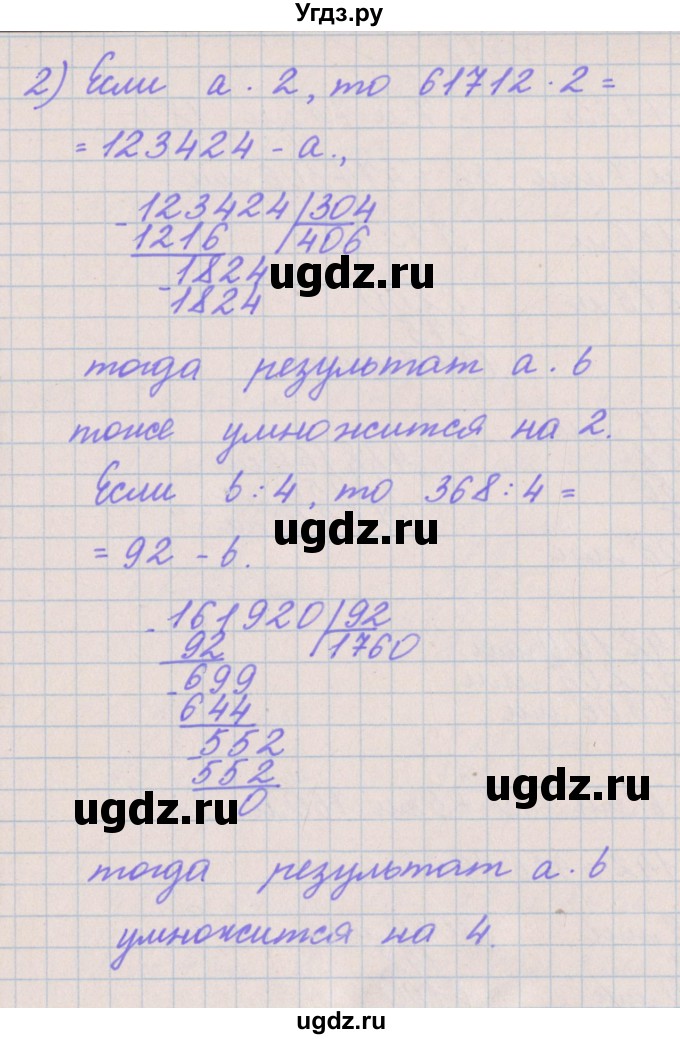 Угдз.ру
2) Если a · 2, то 61712 · 2 =
= 123424 - a.,
- 123424 | 304
1216 | 406
ugdz.ru
- 1824
1824
тогда результат a · b
тоже умножится на 2.
Если b : 4, то 368 : 4 =
ugdz.ru
= 92 - b.
- 161920 | 92
92 | 1760
- 699
644
- 552
552
ugdz.ru
0
ugdz.ru
тогда результат a · b
умножится на 4.
ugdz.ru